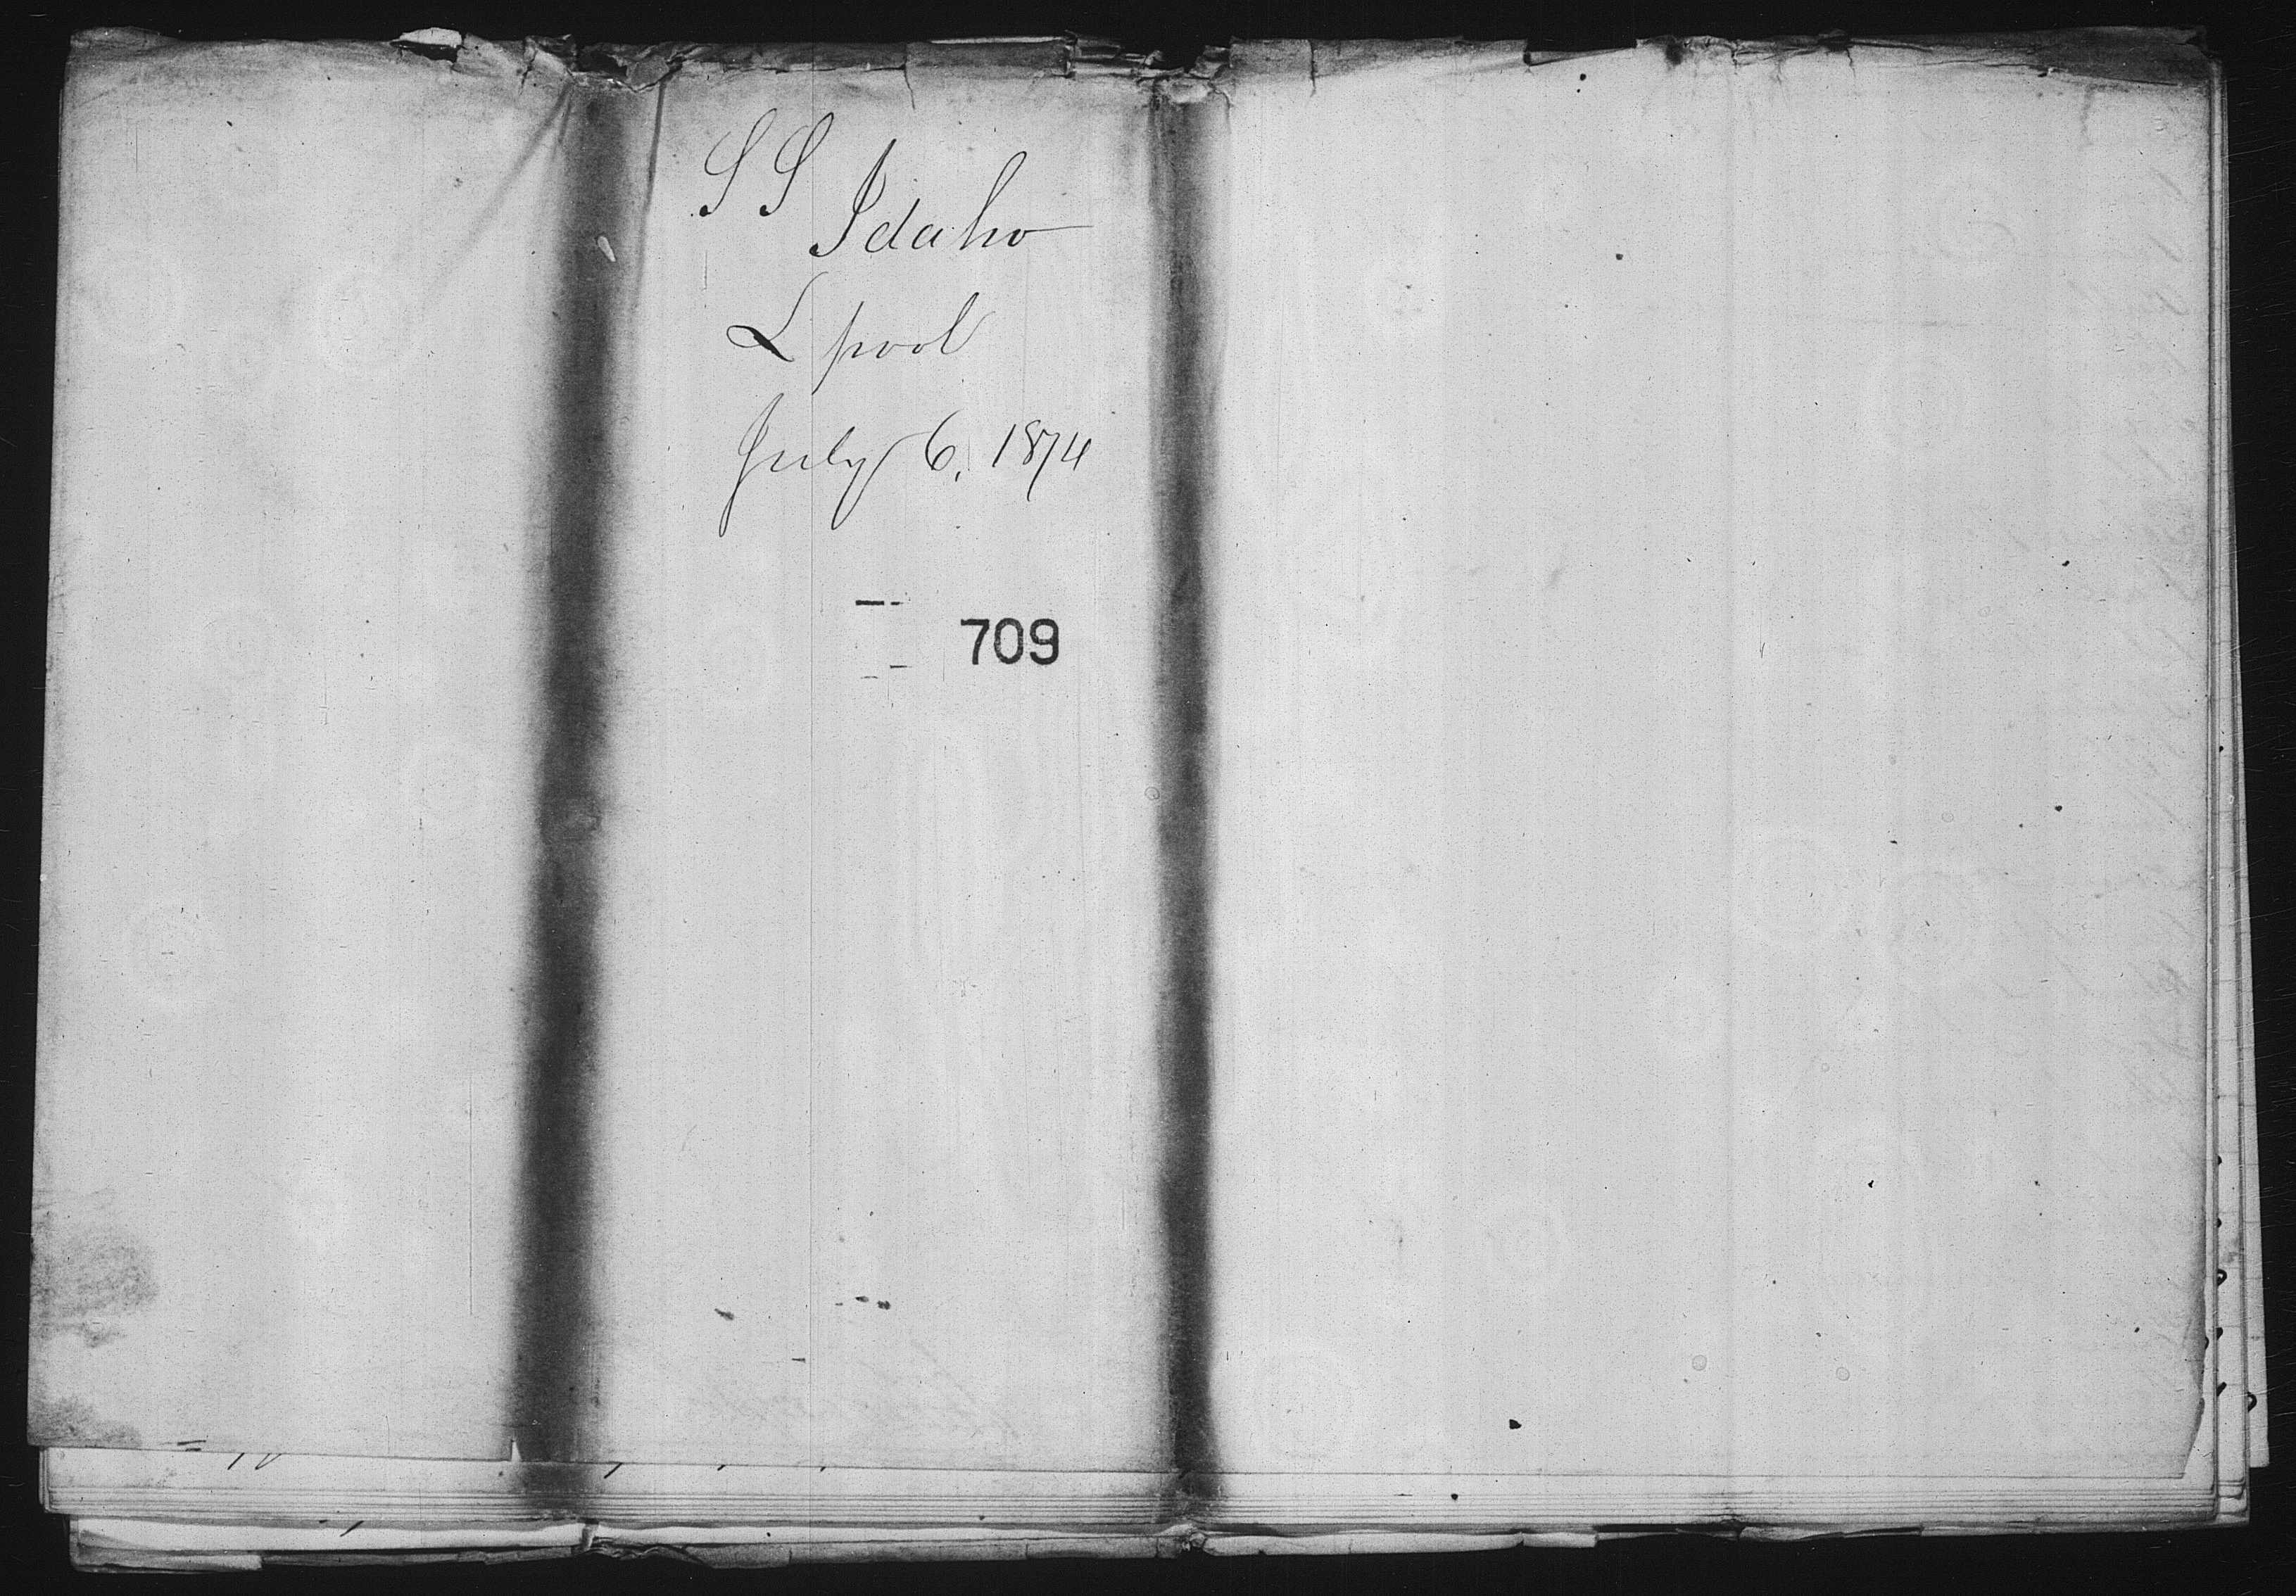 SS Idaho
L pool
July 6, 1874
709